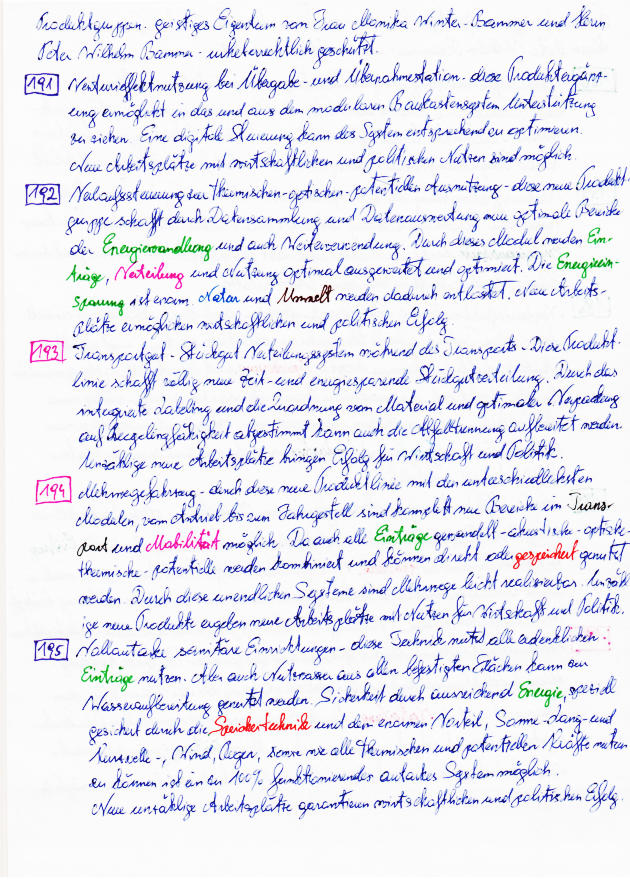 Produktgruppen. geistiges Eigentum von Frau Monika Winter-Bammer und Herrn
Peter Wilhelm Bammer - urheberrechtlich geschützt.
191 Venturieffektnutzung bei Übergabe- und Übernahmestation - diese Produktergänz-
ung ermöglicht in das und aus dem modularen Baukastensystem Unterstützung
zu ziehen. Eine digitale Steuerung kann das System entsprechend optimieren.
Neue Arbeitsplätze mit wirtschaftlichen und politischen Nutzen sind möglich.
192 Verlaufssteuerung zur thermischen-optischen-potentiellen Ausnutzung - diese neue Produkt-
gruppe schafft durch Datensammlung und Datenauswertung neue optimale Bereiche
der Energiewandlung und auch Weiterverwendung. Durch dieses Modul werden Ein-
träge, Verteilung und Nutzung optimal ausgewertet und optimiert. Die Energieein-
sparung ist enorm. Natur und Umwelt werden dadurch entlastet. Neue Arbeits-
plätze ermöglichen wirtschaftlichen und politischen Erfolg.
193 Transportgut - Stückgut Verteilungssystem während des Transports - Diese Produkt-
linie schafft völlig neue Zeit- und energiesparende Stückgutverteilung. Durch das
integrierte Labeling und die Zuordnung vom Material und optimaler Verpackung
auf Recyclingfähigkeit abgestimmt kann auch die Abfalltrennung aufbereitet werden.
Unzählige neue Arbeitsplätze bringen Erfolg für Wirtschaft und Politik.
194 Mehrwegefahrzeug - durch diese neue Produktlinie mit den unterschiedlichsten
Modulen, vom Antrieb bis zum Fahrgestell sind komplett neue Bereiche im Trans-
port und Mobilität möglich. Da auch alle Einträge gewandelt - akustische - optische -
thermische - potentielle werden kombiniert und können direkt oder gespeichert genutzt
werden. Durch diese unendlichen Systeme sind Mehrwege leicht realisierbar. Unzähl-
ige neue Produkte ergeben neue Arbeitsplätze mit Nutzen für Wirtschaft und Politik.
195 Vollautarke sanitäre Einrichtungen - diese Technik nutzt alle erdenklichen
Einträge nutzen. Aber auch Nutzwasser aus allen befestigten Flächen kann zur
Wasseraufbereitung genutzt werden. Sicherheit durch ausreichend Energie, speziell
gesichert durch die Speichertechnik und den enormen Vorteil, Sonne - lang- und
kurzwelle -, Wind, Regen, sowie wie alle thermischen und potentiellen Kräfte nutzen
zu können ist ein zu 100% funktionierendes autarkes System möglich.
Neue unzählige Arbeitsplätze garantieren wirtschaftlichen und politischen Erfolg.